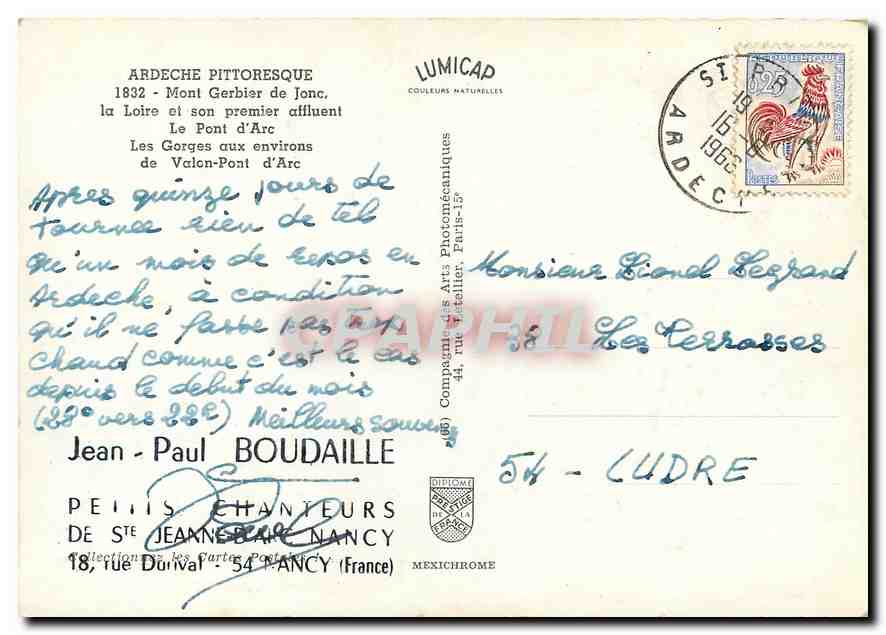 ARDECHE PITTORESQUE
1832 - Mont Gerbier de Jonc,
la Loire et son premier affluent
Le Pont d'Arc
Les Gorges aux environs
de Valon-Pont d'Arc
LUMICAP
COULEURS NATURELLES
Après quinze jours de
tournée rien de tel
qu'un mois de repos en
Ardèche, à condition
qu'il ne fasse pas trop
chaud comme c'est le cas
depuis le début du mois
(28° vers 22h) Meilleurs souvenirs
Jean-Paul BOUDAILLE
PETITS CHANTEURS
DE STE JEANNE D'ARC NANCY
Collectionnez les Cartes Postales !
18, rue Durival - 54 NANCY (France)
(66) Compagnie des Arts Photomécaniques
44, rue Letellier, Paris-15e
DIPLOME
PRESTIGE
DE LA
FRANCE
MEXICHROME
ST PRI
19
16
196
ARDECHE
0,25
FRANÇAISE
POSTES
Monsieur Lionel Legrand
38 Les Terrasses
54 - LUDRE
CPAPHIL